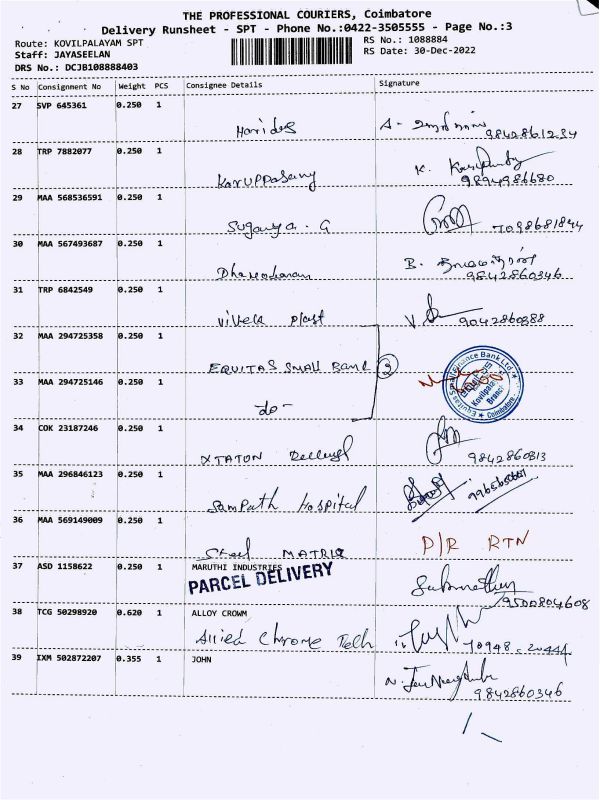 THE PROFESSIONAL COURIERS, Coimbatore
Delivery Runsheet - SPT - Phone No.:0422-3505555 - Page No.:3
Route: KOVILPALAYAM SPT
RS No.: 1088884
Staff: JAYASEELAN
RS Date: 30-Dec-2022
DRS No.: DCJB108888403
S No Consignment No Weight PCS Consignee Details Signature
27 SVP 645361 0.250 1
Haridas A- 9842861234
28 TRP 7882077 0.250 1
Karuppasamy K. 9894986680
29 MAA 568536591 0.250 1
Suganya. G 7098681844
30 MAA 567493687 0.250 1
B. 9842860346
31 TRP 6842549 0.250 1
Vivek Plast V. 9042860888
32 MAA 294725358 0.250 1
EQUITAS SMALL BANK 2
33 MAA 294725146 0.250 1
do-
34 COK 23187246 0.250 1
XTATON 9842860813
35 MAA 296846123 0.250 1
Sampath Hospital
36 MAA 569149009 0.250 1
Steel MATRIX D/R RTN
37 ASD 1158622 0.250 1 MARUTHI INDUSTRIES
PARCEL DELIVERY
9500804608
38 TCG 50298920 0.620 1 ALLOY CROWM
Allied Chrome Tech 70948-20444
39 IXM 502872207 0.355 1 JOHN
N. 9842860346